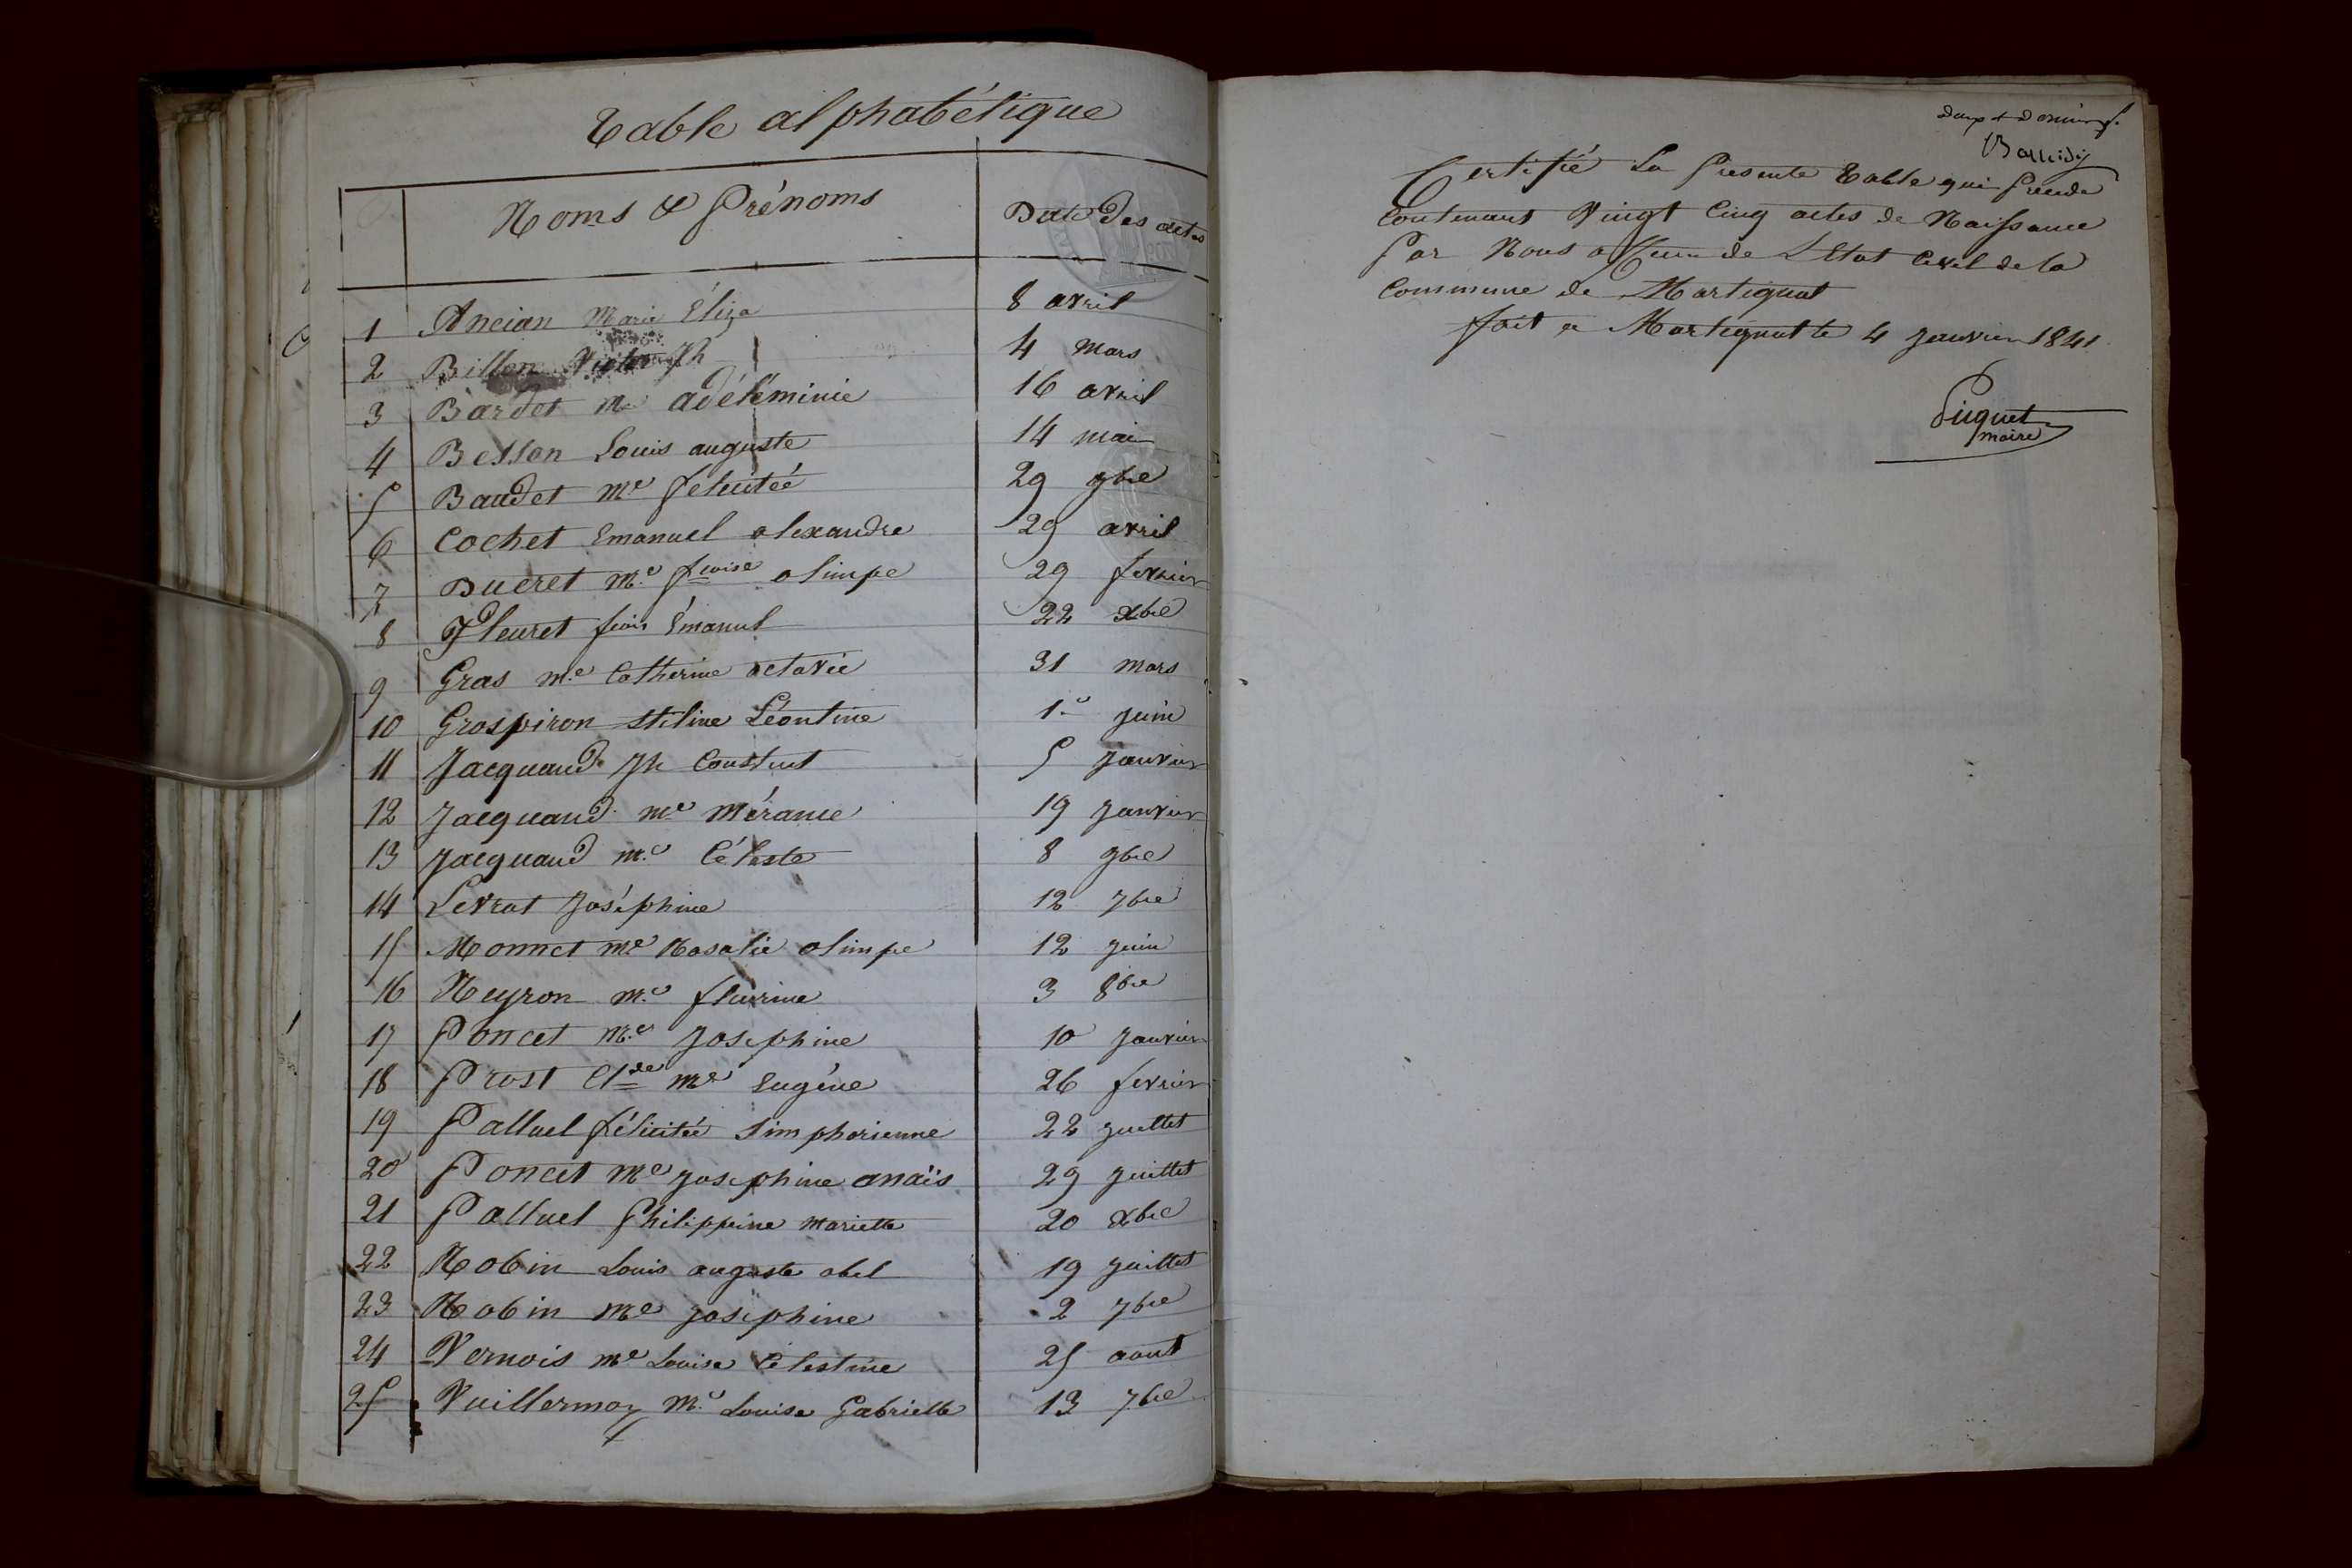 Table alphabétique
Noms & Prénoms Date des actes
1 Ancian Marie Éliza 8 avril
2 Billon Victor Jh 4 Mars
3 Bardet Me adéléminie 16 avril
4 Besson Louis auguste 14 mai
5 Baudet Me félicitée 29 9bre
6 Cochet Emanuel alexandre 29 avril
7 Ducret Me fcoise olimpe 29 fevrier
8 Fleuret fcois Émanuel 22 xbre
9 Gras Me Catherine octavie 31 mars
10 Grospiron stiline Léontine 1er juin
11 Jacquand Jh Constant 5 Janvier
12 Jacquand Me Mérance 19 Janvier
13 Jacquand Me Céleste 8 9bre
14 Levrat Joséphine 12 7bre
15 Monnet Me Rosalie olimpe 12 juin
16 Neyron Me fleurine 3 8bre
17 Poncet Me Josephine 10 Janvier
18 Prost Clde Me Eugène 26 fevrier
19 Palluel félicitée Simphorienne 22 juillet
20 Poncet Me Josephine anaïs 29 juillet
21 Palluel Philippine Mariette 20 xbre
22 Robin Louis auguste abel 19 juillet
23 Robin Me Josephine 2 7bre
24 Vernois Me Louise Célestine 25 aout
25 Vuillermoz Me Louise Gabrielle 13 7bre
Certifié La Presente Table qui Precede
Contenant Vingt Cinq actes de Naissance
Par Nous officier de L'Etat Civil de la
Commune de Martignat
fait a Martignat le 4 Janvier 1841
Piquet
maire